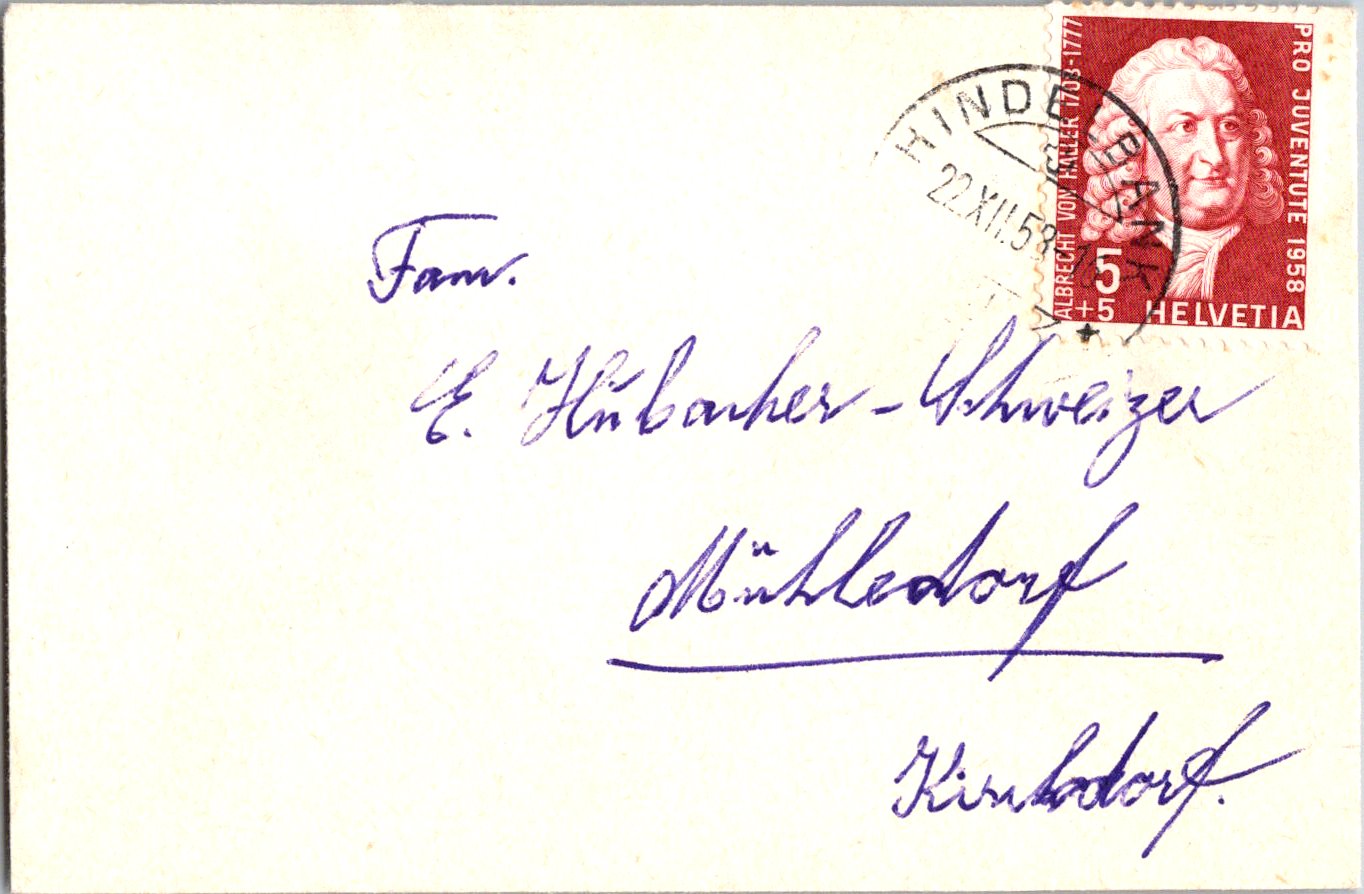 ALBRECHT VON HALLER 1708-1777
PRO JUVENTUTE 1958
5
+5 HELVETIA
HINDELBANK
22.XII.58-
Fam.
E. Hubacher - Schweizer
Mühledorf
Kirchdorf.